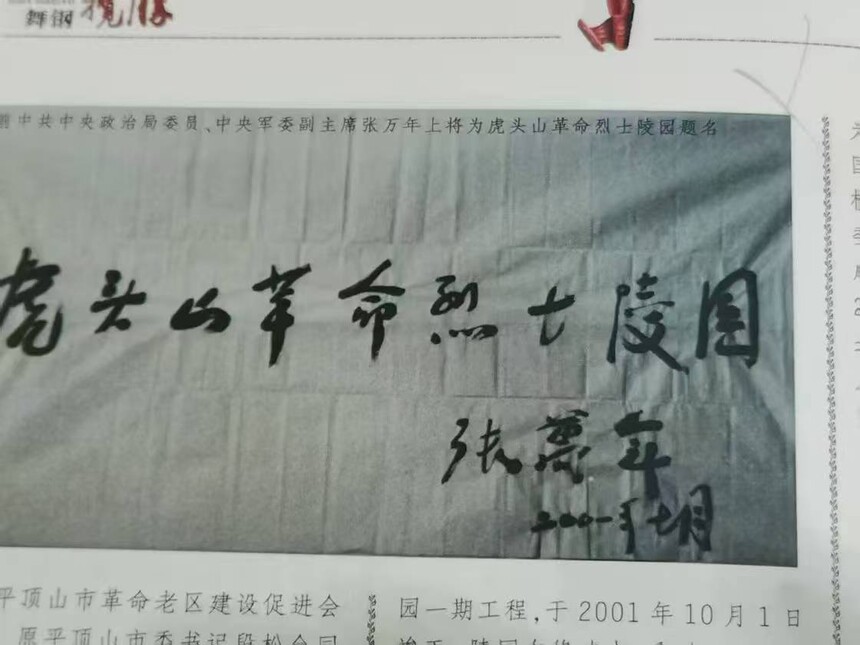 舞钢揽胜
中共中央政治局委员、中央军委副主席张万年上将为虎头山革命烈士陵园题名
虎头山革命烈士陵园
张萬年
二〇〇一年七月
平顶山市革命老区建设促进会
原平顶山市委书记段松会同
园一期工程,于2001年10月1日